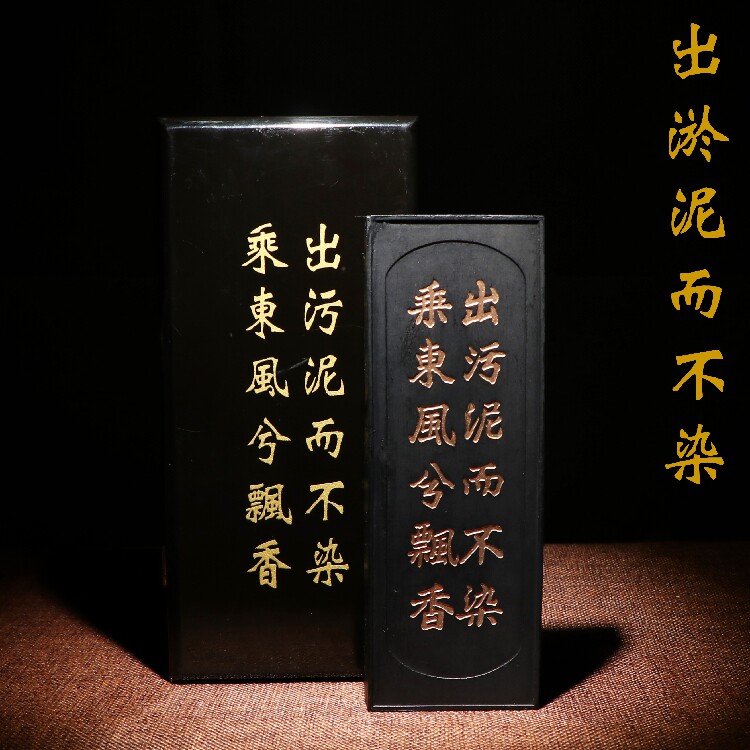 出淤泥而不染
出污泥而不染
乘東風兮飄香
出污泥而不染
乘東風兮飄香